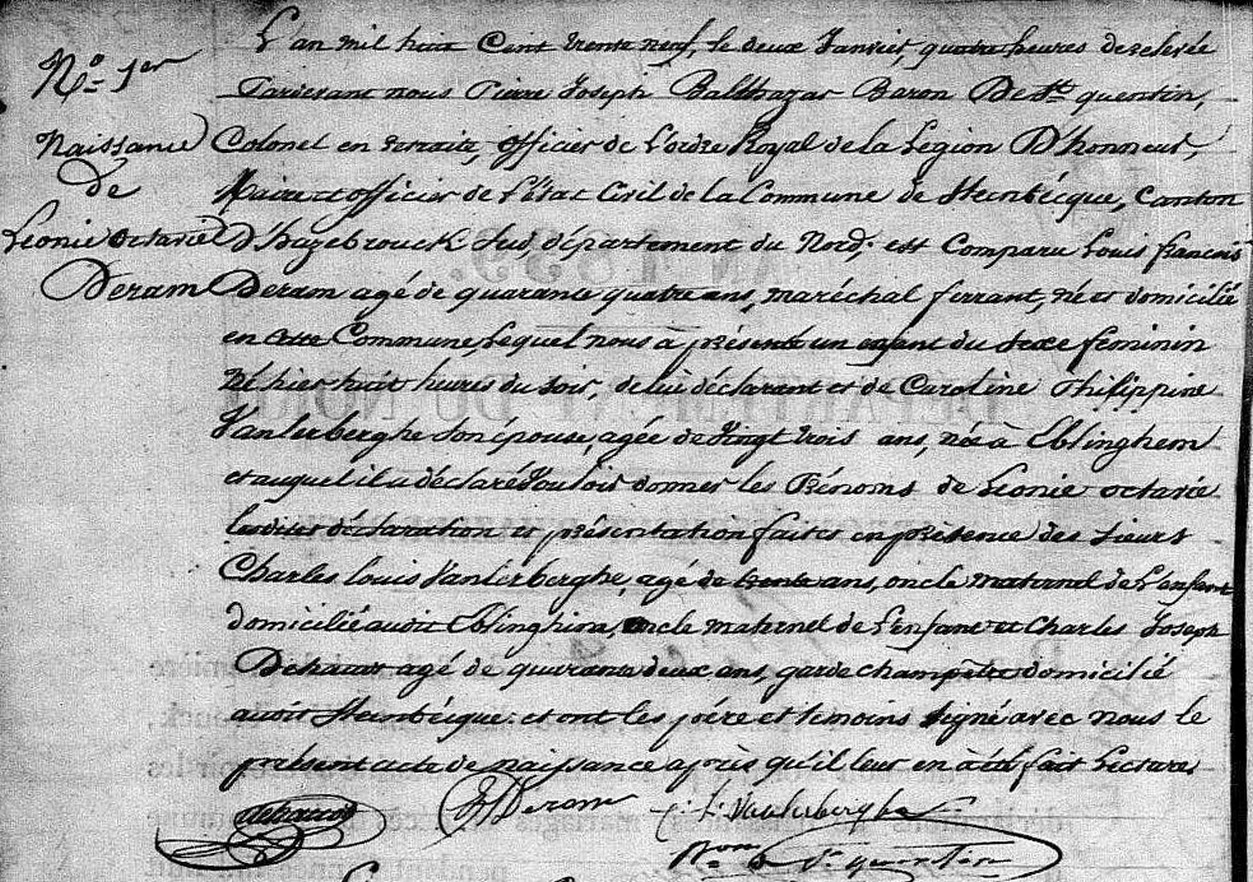 N° 1er
Naissance
de
Léonie Octavie
Deram
L'an mil huit Cent trente neuf, le deux Janvier, quatre heures de relevée
Pardevant nous Pierre Joseph Balthazar Baron De St quentin,
Colonel en retraite, officier de L'ordre Royal de la Légion D'honneur,
Maire et officier de L'état Civil de la Commune de Steenbécque, Canton
d'hazebrouck Sud, département du Nord; est Comparu Louis françois
Deram agé de quarante quatre ans, maréchal ferrant, né et domicilié
en cette Commune, Lequel nous à présenté un enfant du sexe féminin
né hier huit heures du soir, de lui déclarant et de Caroline Philippine
Vanlerberghe son épouse, agée de Vingt trois ans, née à Eblinghem
et auquel il a déclaré Vouloir donner les Prénoms de Léonie octavie
lesdites déclaration et présentation faites en présence des sieurs
Charles Louis Vanlerberghe, agé de trente ans, oncle maternel de L'enfant
domicilié audit Eblinghem, oncle maternel de L'enfant et Charles Joseph
Dehaut agé de quarante deux ans, garde champêtre domicilié
audit Steenbécque: et ont les père et temoins signé avec nous le
présent acte de naissance après qu'il leur en à été fait Lecture.
Deram
C. L. Vanlerberghe
Bon de St quentin